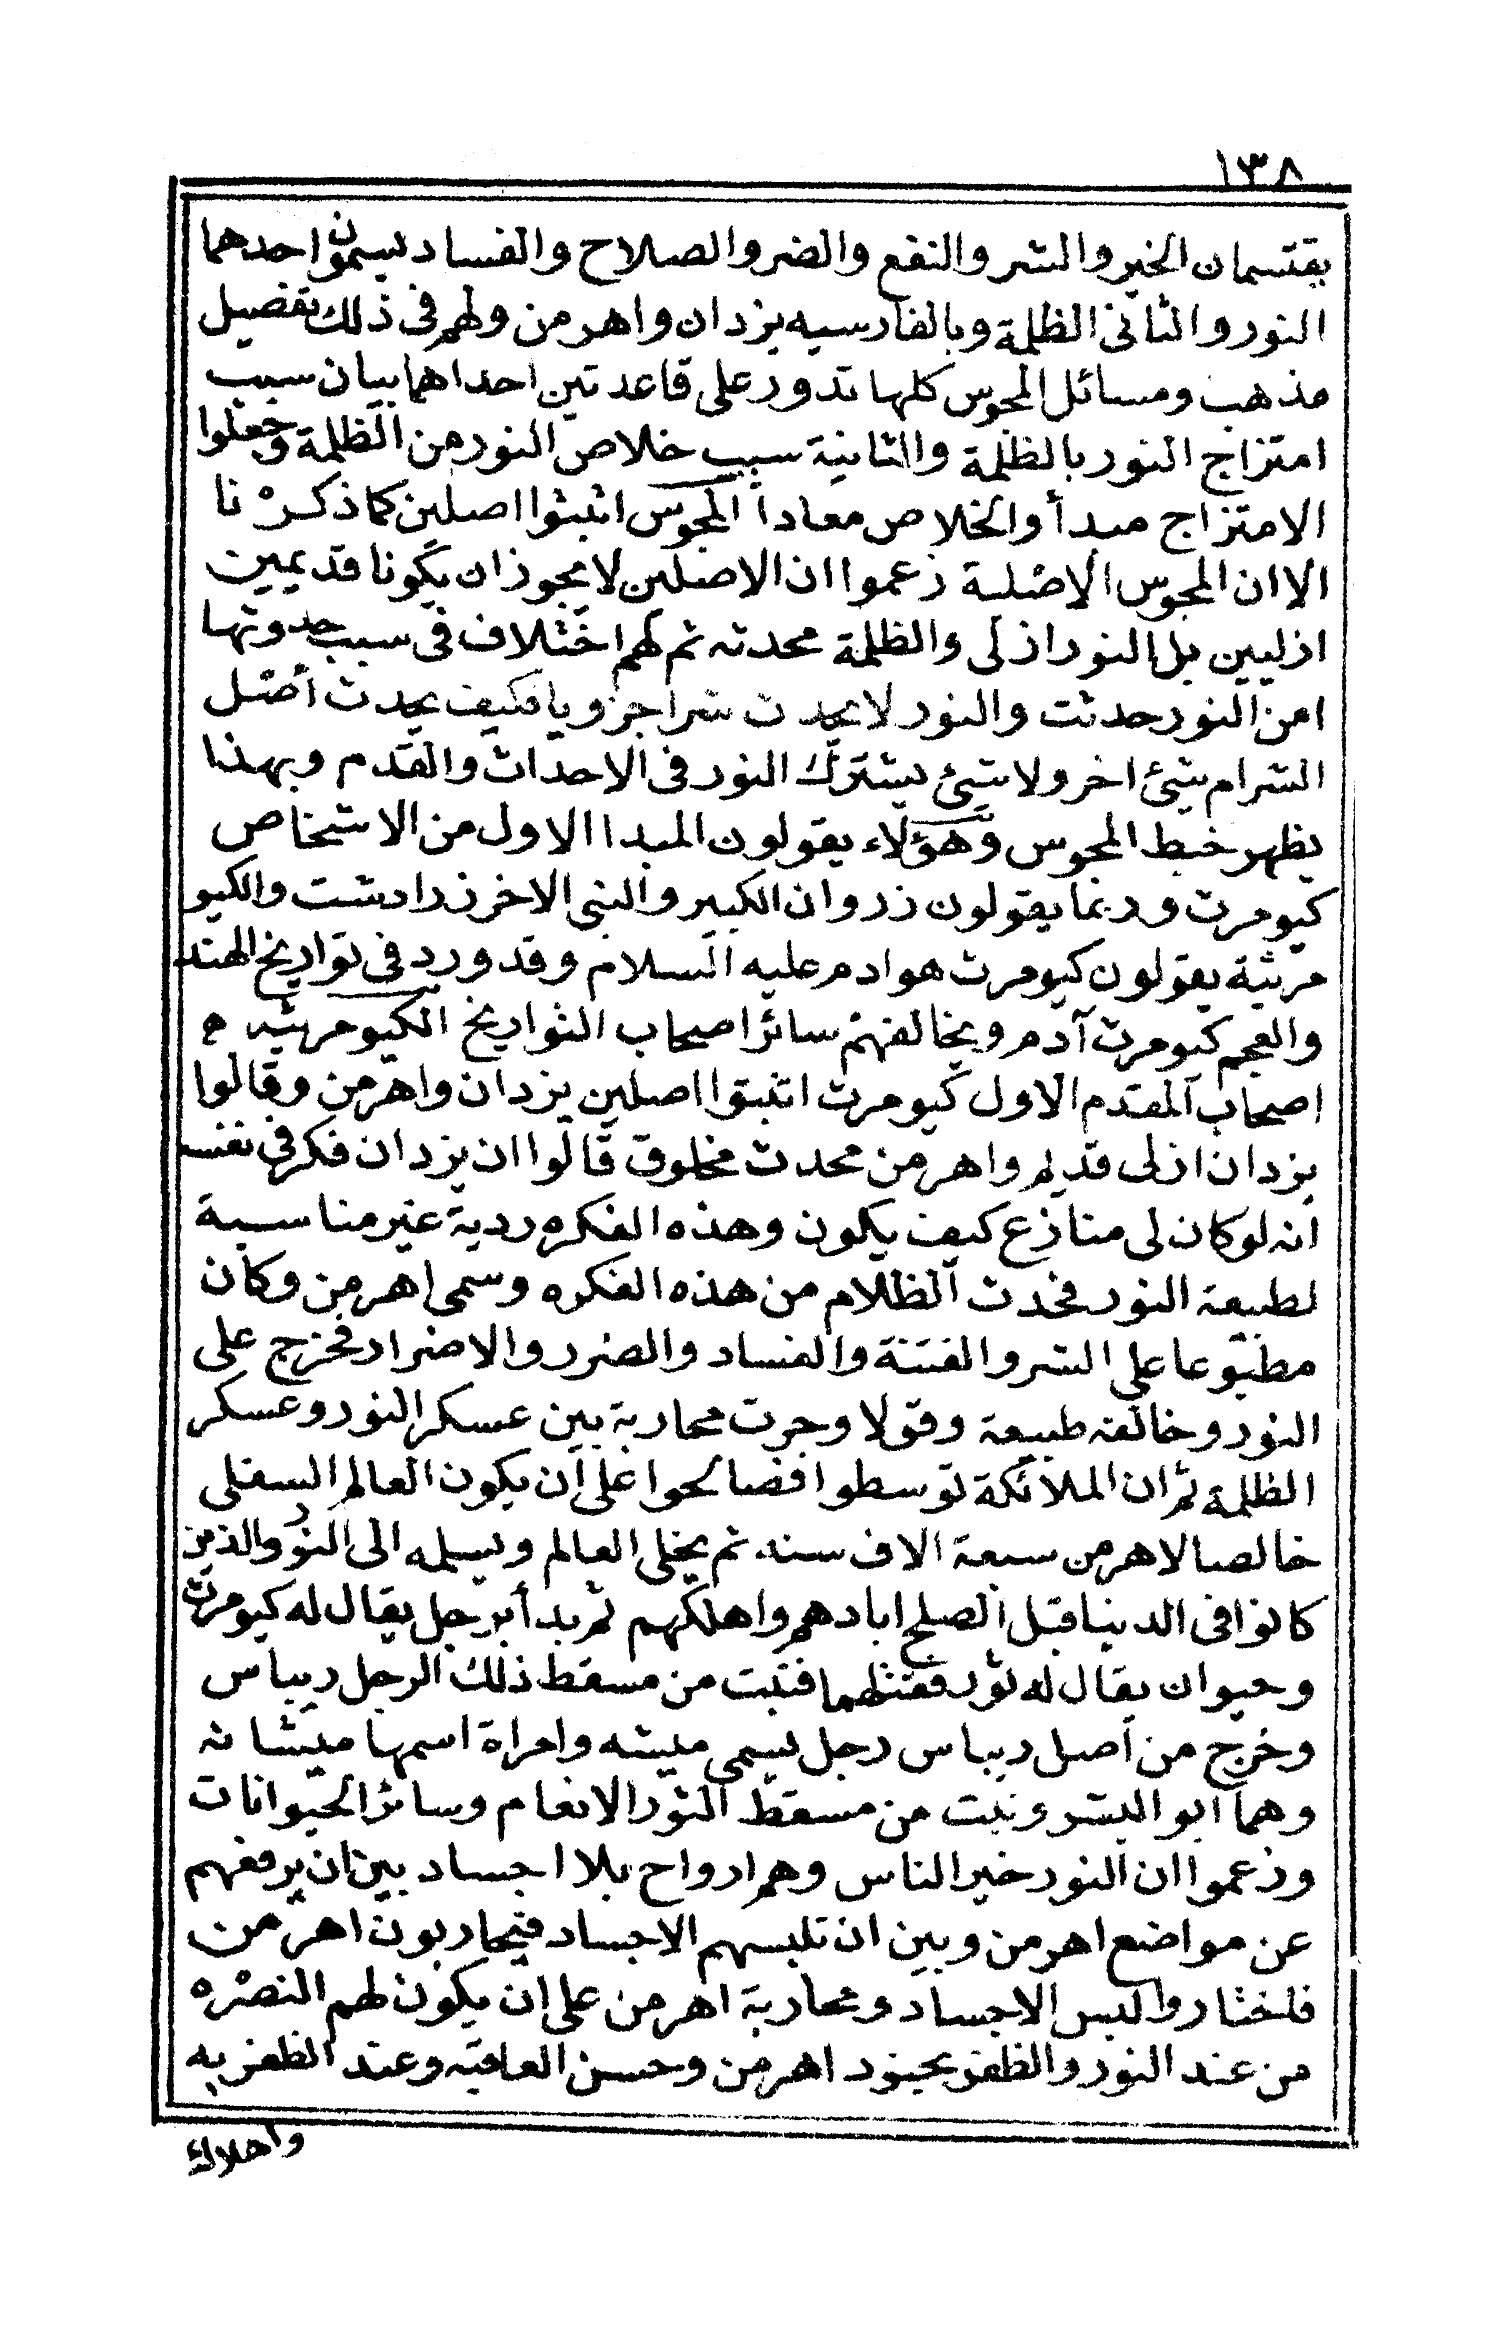 ١٣٨
يقتسمان الخير والشر والنفع والضر والصلاح والفساد يسمون احدهما
النور والثانى الظلمة وبالفارسيه يزدان واهرمن ولهم فى ذلك تفضيل
مذهب ومسائل المجوس كلها تدور على قاعدتين احداهما بيان سبب
امتزاج النور بالظلمة والثانية سبب خلاص النور من الظلمة وجعلوا
الامتزاج مبدأ والخلاص معادا المجوس اثبتوا اصلين كما ذكرنا
الا ان المجوس الاصلية زعموا ان الاصلين لا يجوز ان يكونا قديمين
ازليين بل النور ازلى والظلمة محدثه ثم لهم اختلاف فى سبب حدوثها
امن النور حدثت والنور لا يحدث شرا جزويا فكيف يحدث أصل
الشرام شئ اخر ولا شئ يشترك النور فى الاحداث والقدم وبهذا
يظهر خبط المجوس وهؤلاء يقولون المبدا الاول من الاشخاص
كيومرث وربما يقولون زروان الكبير والنبى الاخر زرادشت والكيو
مرثية يقولون كيومرث هو ادم عليه السلام وقد ورد فى تواريخ الهند
والعجم كيومرث آدم ويخالفهم سائر اصحاب التواريخ الكيومرثيه م
اصحاب المقدم الاول كيومرث اثبتوا اصلين يزدان واهرمن وقالوا
يزدان ازلى قديم واهرمن محدث مخلوق قالوا ان يزدان فكر فى نفسه
انه لو كان لى منازع كيف يكون وهذه الفكره ردية غير مناسبة
لطبيعة النور فحدث الظلام من هذه الفكره وسمى اهرمن وكان
مطبوعا على الشر والفتنة والفساد والضرر والاضرار فخرج على
النور وخالفه طبيعة وقولا وجرت محاربة بين عسكر النور وعسكر
الظلمة ثم ان الملائكة توسطوا فصالحوا على ان يكون العالم السفلى
خالصا لاهرمن سبعة الاف سنه ثم يخلى العالم ويسلمه الى النور والذين
كانوا فى الدنيا قبل الصلح ابادهم واهلكهم ثم بدأ برجل يقال له كيومرث
وحيوان يقال له ثور فقتلهما فنبت من مسقط ذلك الرجل ريباس
وخرج من اصل ريباس رجل يسمى ميشه وامراة اسمها ميشانه
وهما ابو البشر ونبت من مسقط الثور الانعام وسائر الحيوانات
وزعموا ان النور خير الناس وهم ارواح بلا اجساد بين ان يرفعهم
عن مواضع اهرمن وبين ان تلبسهم الاجساد فيحاربون اهرمن
فاختاروا لبس الاجساد ومحاربة اهرمن على ان يكون لهم النصره
من عند النور والظفر بجنود اهرمن وحسن العاقبه وعند الظفر به
واهلاك